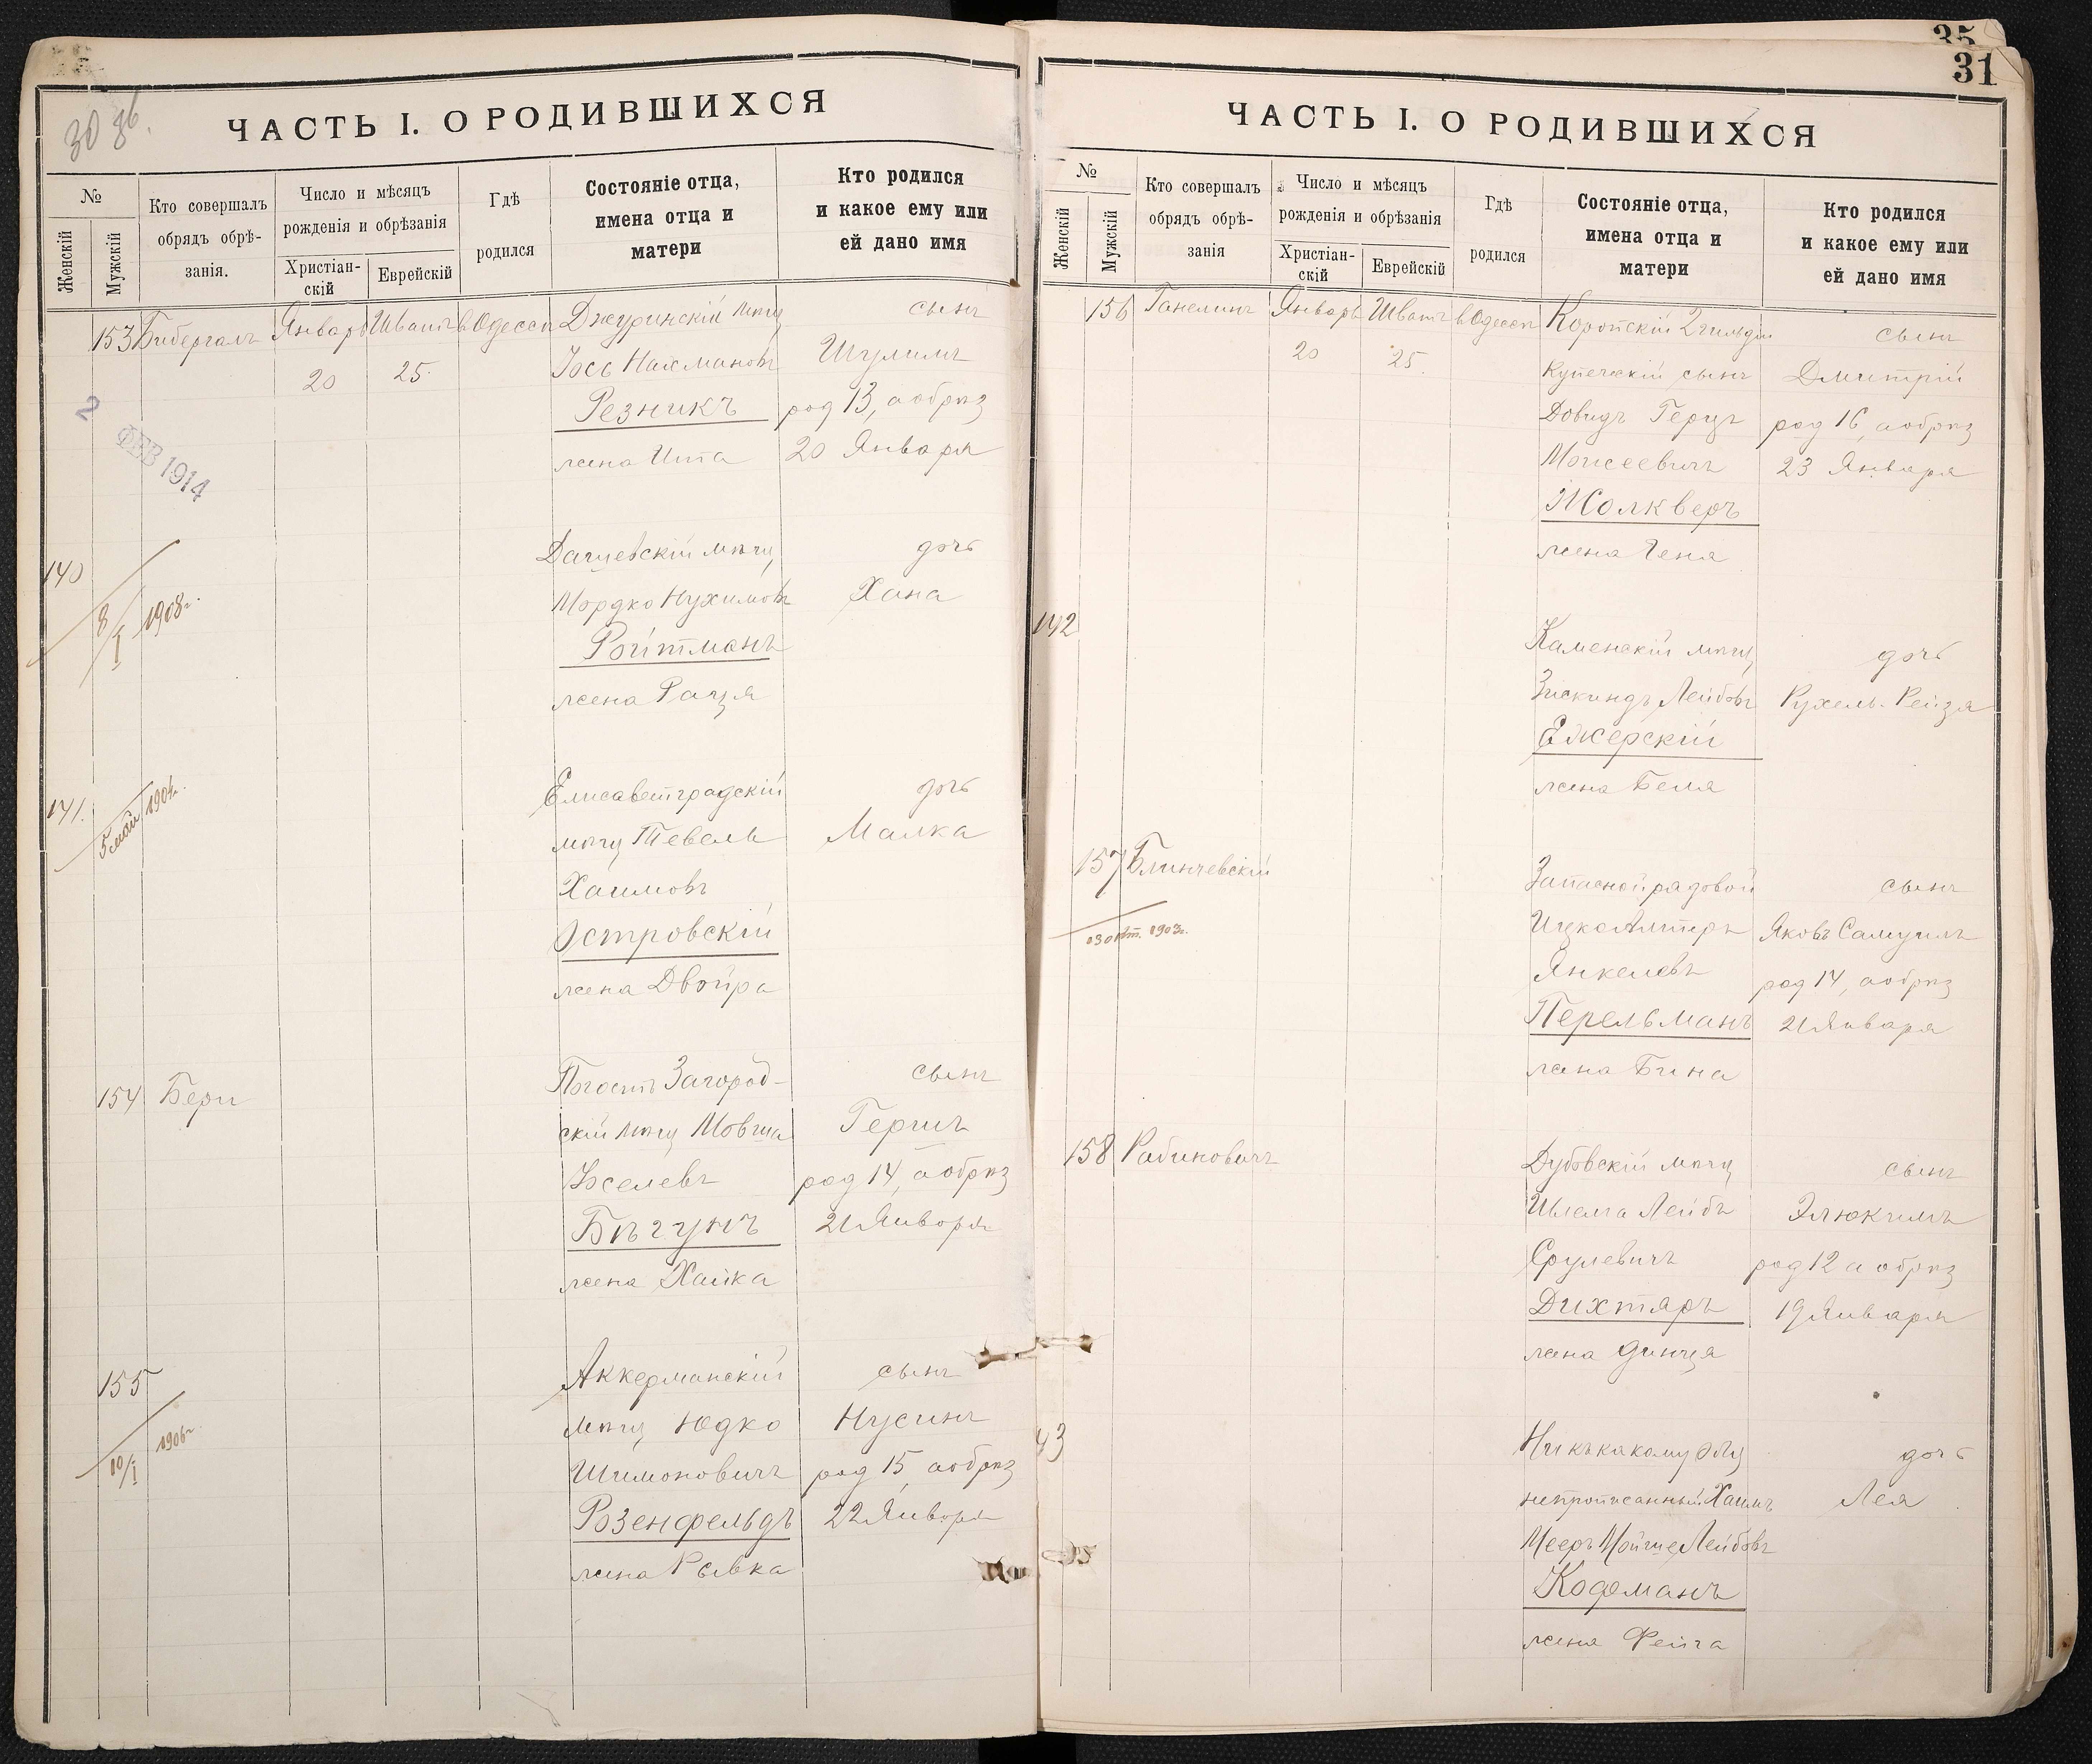 30 об.
ЧАСТЬ I. О РОДИВШИХСЯ
№
Женскій
Мужскій
Кто совершалъ
обрядъ обрѣ-
занія.
Число и мѣсяцъ
рожденія и обрѣзанія
Христіан-
скій
Еврейскій
Гдѣ
родился
Состояніе отца,
имена отца и
матери
Кто родился
и какое ему или
ей дано имя
153 Бибергалъ Январь Шватъ в Одессѣ Джуринскій мѣщ сынъ
20 25. Іось Нахмановъ Шулимъ
Резникъ род 13, а обрѣз
жена Ита 20 Января
2 ФЕВ 1914
140 Дашевскій мѣщ дочь
8/I 1908г. Мордко Нухимовъ Хана
Ройтманъ
жена Раця
141. Елисаветградскій дочь
мѣщ Тевель Малка
Хаимовъ
Островскій
жена Двойра
154 Бери Погостъ Загород-
сынъ
скій мѣщ Мовша Гершъ
Іоселевъ род 14, а обрѣз
Бѣгунъ 21 Января
жена Хайка
155 Аккерманскій сынъ
10/I 1906г мѣщ Юдко Нусинъ
Шимоновичъ род 15 а обрѣз
Розенфельдъ 22 Января
жена Рывка
35
31
ЧАСТЬ I. О РОДИВШИХСЯ
№
Женскій
Мужскій
Кто совершалъ
обрядъ обрѣ-
занія
Число и мѣсяцъ
рожденія и обрѣзанія
Христіан-
скій
Еврейскій
Гдѣ
родился
Состояніе отца,
имена отца и
матери
Кто родился
и какое ему или
ей дано имя
156 Ганелинъ Январь Шватъ в Одессѣ Коропскій 2 гильдіи сынъ
20 25. Купеческій сынъ Дмитрій
Довидъ Герцъ род 16, а обрѣз
Моисеевичъ 23 Января
Жолкверъ
жена Геня
142 Каменскій мѣщ дочь
Зискиндъ Лейбовъ Рухель-Рейзя
Ежерскій
жена Беля
157 Блинчевскій Запасной рядовой сынъ
Ицко Алтеръ Яковъ Самуилъ
Янкелевъ род 14, а обрѣз
Перельманъ 21 Января
жена Бина
158 Рабиновичъ Дубовскій мѣщ сынъ
Шлема Лейбъ Элюкимъ
Срулевичъ род 12 а обрѣз
Дихтяръ 19 Января
жена Динця
43 Ни къ какому общ дочь
неприписанный Хаимъ Лея
Мееръ Мойше Лейбовъ
Кофманъ
жена Фейга